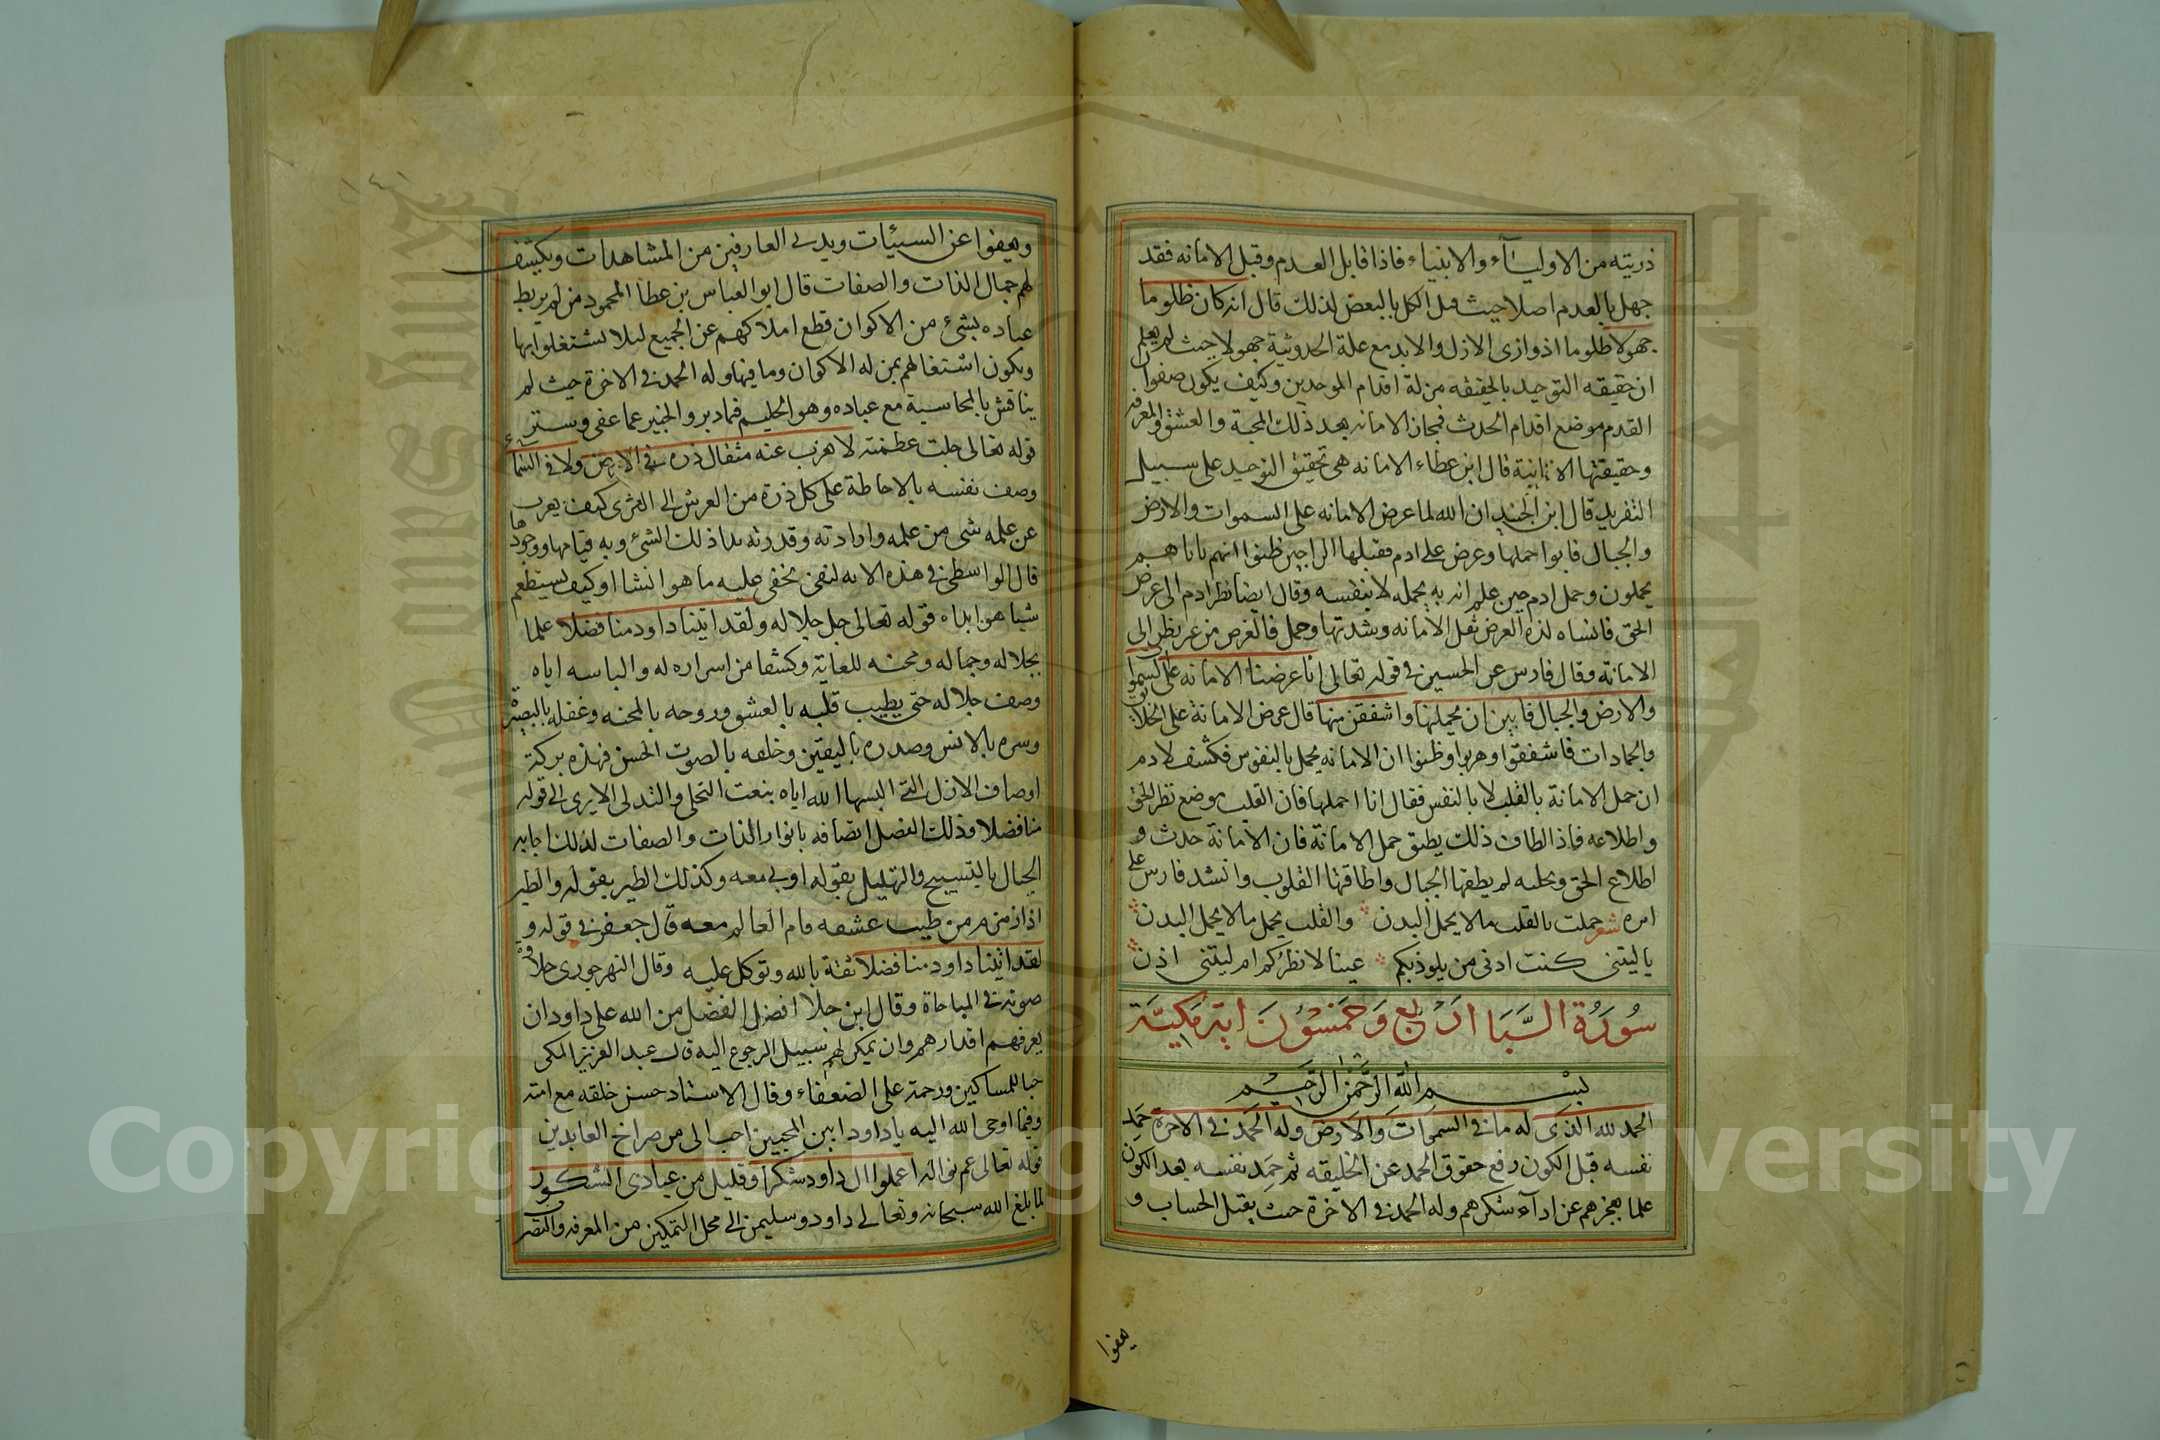 ذريته من الاولياء والانبياء فاذا قابل العدم وقبل الامانه فقد
جهل بالعدم اصلا حيث قبل الكل بالبعض لذلك قال انه كان ظلوما
جهولا ظلوما اذ وازى الازل والابد مع علة الحدوثية جهولا حيث لم يعلم
ان حقيقه التوحيد بالحقيقه مزلة اقدام الموحدين وكيف يكون صفوا
القدم موضع اقدام الحدث فبحان الامانه بعد ذلك المحبة والعشق والمعرفه
وحقيقتها الانانية قال ابن عطاء الامانه هي تحقيق التوحيد على سبيل
التفريد قال ابن الجنيد ان الله لما عرض الامانه على السموات والارض
والجبال فابوا حملها وعرض على ادم فقبلها الراجين ظنوا انهم باناهم
يحملون وحمل ادم حين علم انه به يحمله لا بنفسه وقال ايضا نظر ادم الى عرض
الحق فانساه لذة العرض ثقل الامانه وشدتها وحمل فالغرض من عر نظر الى
الامانة وقال فارس عن الحسين في قوله تعالى انا عرضنا الامانه على السموات
والارض والجبال فابين ان يحملنها واشفقن منها قال عرض الامانة على الخلائق
والجمادات فاشفقوا وهربوا وظنوا ان الامانه يحمل بالنفوس فكشف لادم
ان حمل الامانة بالقلب لا بالنفس فقال انا احملها فان القلب موضع نظر الحق
واطلاعه فاذا اطاق ذلك يطيق حمل الامانة فان الامانة حدث و
اطلاع الحق وتجليه لم يطقها الجبال واطاقتها القلوب وانشد فارس على
امره شعر حملت بالقلب ما لا يحمل البدن والقلب يحمل ما لا يحمل البدن
يا ليتنى كنت ادنى من يلوذ بكم عينا لانظركم ام ليتنى اذن
سورة السبا اربع وخمسون اية مكية
بسم الله الرحمن الرحيم
الحمد لله الذى له ما في السموات والارض وله الحمد في الاخرة حمد
نفسه قبل الكون رفع حقوق الحمد عن الخليقه ثم حمد نفسه بعد الكون
علما بعجزهم عن اداء شكرهم وله الحمد في الاخرة حيث يقبل الحساب و
يعفوا
ويعفوا عن السيئات ويدنى العارفين من المشاهدات ويكشف
لهم جمال الذات والصفات قال ابو العباس بن عطا المحمود من لم يربط
عباده بشئ من الاكوان قطع املاكهم عن الجميع ليلا يشتغلوا بها
ويكون اشتغالهم بمن له الاكوان وما فيها وله الحمد في الاخرة حيث لم
يناقش بالمحاسبة مع عباده وهو الحليم فيما دبر والخبير عما عفى وستر
قوله تعالى جلت عظمته لا يعزب عنه مثقال ذره في الارض ولا في السماء
وصف نفسه بالاحاطة على كل ذرة من العرش الى الثرى كيف يعزب
عن علمه شى من علمه وارادته وقدرته بدا ذلك الشئ وبه قيامها ووجودها
قال الواسطى في هذه الايه لنفى يخفى عليه ما هو انشا او كيف يستظعم
شيا هو ابداه قوله تعالى جل جلاله ولقد اتينا داود منا فضلا علما
بجلاله وجماله ومحبه للغاية وكشفا من اسراره له والباسه اياه
وصف جلاله حتى يطيب قلبه بالعشق وروحه بالمحبه وعقله بالبصيرة
وسره بالانس وصدره باليقين وخلقه بالصوت الحسن فهذه بركة
اوصاف الازل التى البسها الله اياه بنعت التجلى والتدلى الا يرى الى قوله
منا فضلا وذلك الفضل اتصافه بانوار الذات والصفات لذلك اجابه
الجبال بالتسبيح والتهليل بقوله اوبى معه وكذلك الطير بقوله والطير
اذا زمزم من طيب عشقه قام العالم معه قال جعفر في قوله و
لقد اتينا داود منا فضلا ثقة بالله وتوكل عليه وقال النهرجورى حلاوة
صوته في المناجاة وقال ابن جلا افضل الفضل من الله على داود ان
يعرفهم اقدارهم وان يمكن لهم سبيل الرجوع اليه قال عبد العزيز المكى
حبا للمساكين ورحمة على الضعفاء وقال الاستاد حسن خلقه مع امته
وفيما اوحى الله اليه يا داود انين المحبين احب الى من صراخ العابدين
قوله تعالى عم نواله اعملوا ال داود شكرا وقليل من عبادى الشكور
لما بلغ الله سبحانه وتعالى داود وسليمن الى محل التمكين من المعرفه والنصر
Copyright © King Saud University